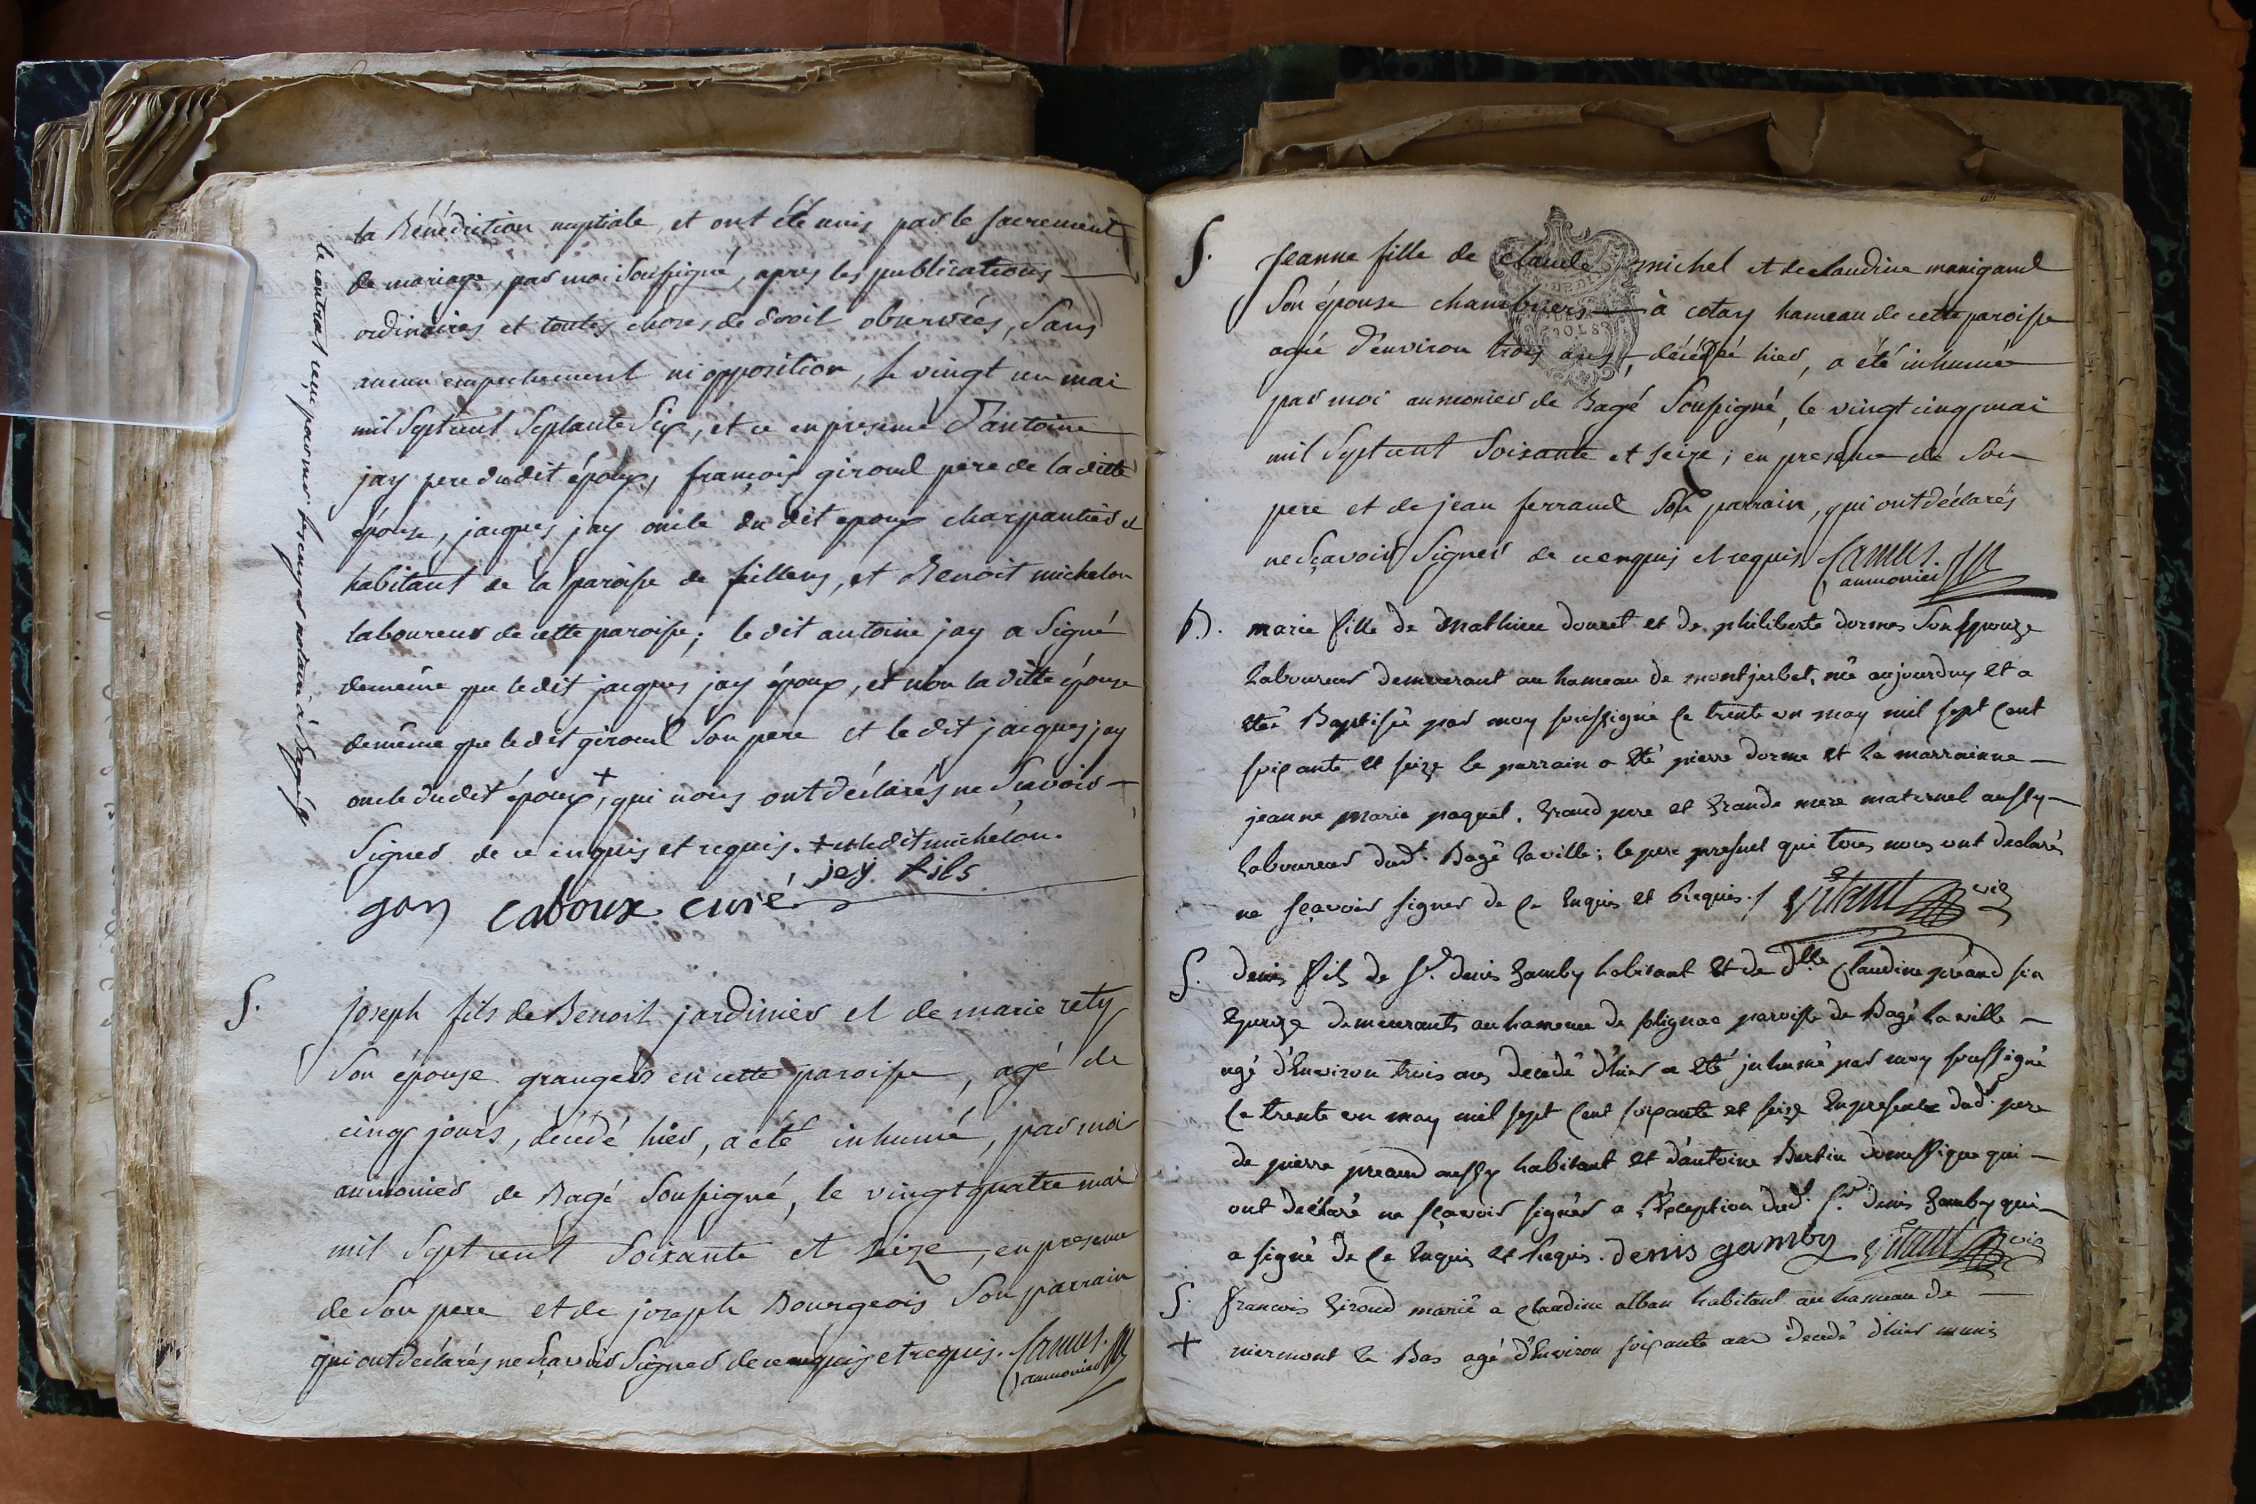 la Bénédiction nuptiale, et ont été unis par le sacrement
de mariage, par moi soussigné, apres les publications
ordinaires et toutes choses de droit observées, sans
aucun empechement ni opposition, le vingt un mai
mil sept cent septante six, et ce en presence d'antoine
jay pere du dit époux, françois giroud père de la ditte
épouse, jacques jay oncle du dit epoux charpantier et
habitant de la paroisse de feillens, et Benoit michelon
laboureur de cette paroisse; le dit antoine jay a signé
demême que le dit jacques jay époux, et non la ditte épouse
demême que le dit giroud son pere et le dit jacques jay
oncle du dit époux +, qui nous ont déclarés ne sçavoir
signer de ce enquis et requis. + et le dit michelon.
jey fils
gay caboux curé
le contrat reçu par me notaire à Bagé
S.
joseph fils de Benoit jardinier et de marie rety
son épouse granger en cette paroisse, agé de
cinq jours, décédé hier, a été inhumé, par moi
aumonier de Bagé soussigné, le vingt quatre mai
mil sept cent soixante et seize, en presence
de son pere et de joseph Bourgeois son parrain
qui ont déclarés ne sçavoir signer de ce enquis et requis. Camus.
aumonier
S.
Jeanne fille de claude michel et de claudine manigand
son épouse chambriers à cotay hameau de cette paroisse
agée d'environ trois ans, décédée hier, a été inhumée
par moi aumonier de Bagé soussigné, le vingt cinq mai
mil sept cent soixante et seize; en presence de son
pere et de jean ferrand son parrain, qui ont déclarés
ne sçavoir signer de ce enquis et requis Camus.
aumonier
B.
marie fille de mathieu douset et de philiberte dormes son Epouze
Laboureur demeurant au hameau de montjerbet, née aujourduy Et a
Etée Baptisée par moy soussigné Ce trente un may mil sept Cent
soixante et seize le parrain a Eté pierre dorme et la marrainne
jeanne marie paquet. Grand pere et Grande mere maternel aussy
Laboureur dud. Bagé La ville; le pere presnt qui tous nous ont declarés
ne sçavoir signer de Ce Enquis et Requis./ vic
S.
denis fils de Sr. denis Gamby habitant et de dlle Claudine preand son
Epouze demeurants au hameau de solignac paroisse de Bagé La ville
agé d'Environ trois ans decedé d'hier a Eté jnhumé par moy soussigné
Ce trente un may mil sept Cent soixante et seize En presence dud. pere
de pierre preand aussy habitant et d'antoine Bertin domestique qui
ont declaré ne sçavoir signer a l'Exception dud. Sr. denis Gamby qui
a signé de Ce Enquis et Requis. denis gamby vic
S.
+
francois Giroud marié a Claudine alban habitant au hameau de
niermont le Bas agé d'Environ soixante ans decedé d'hier munis